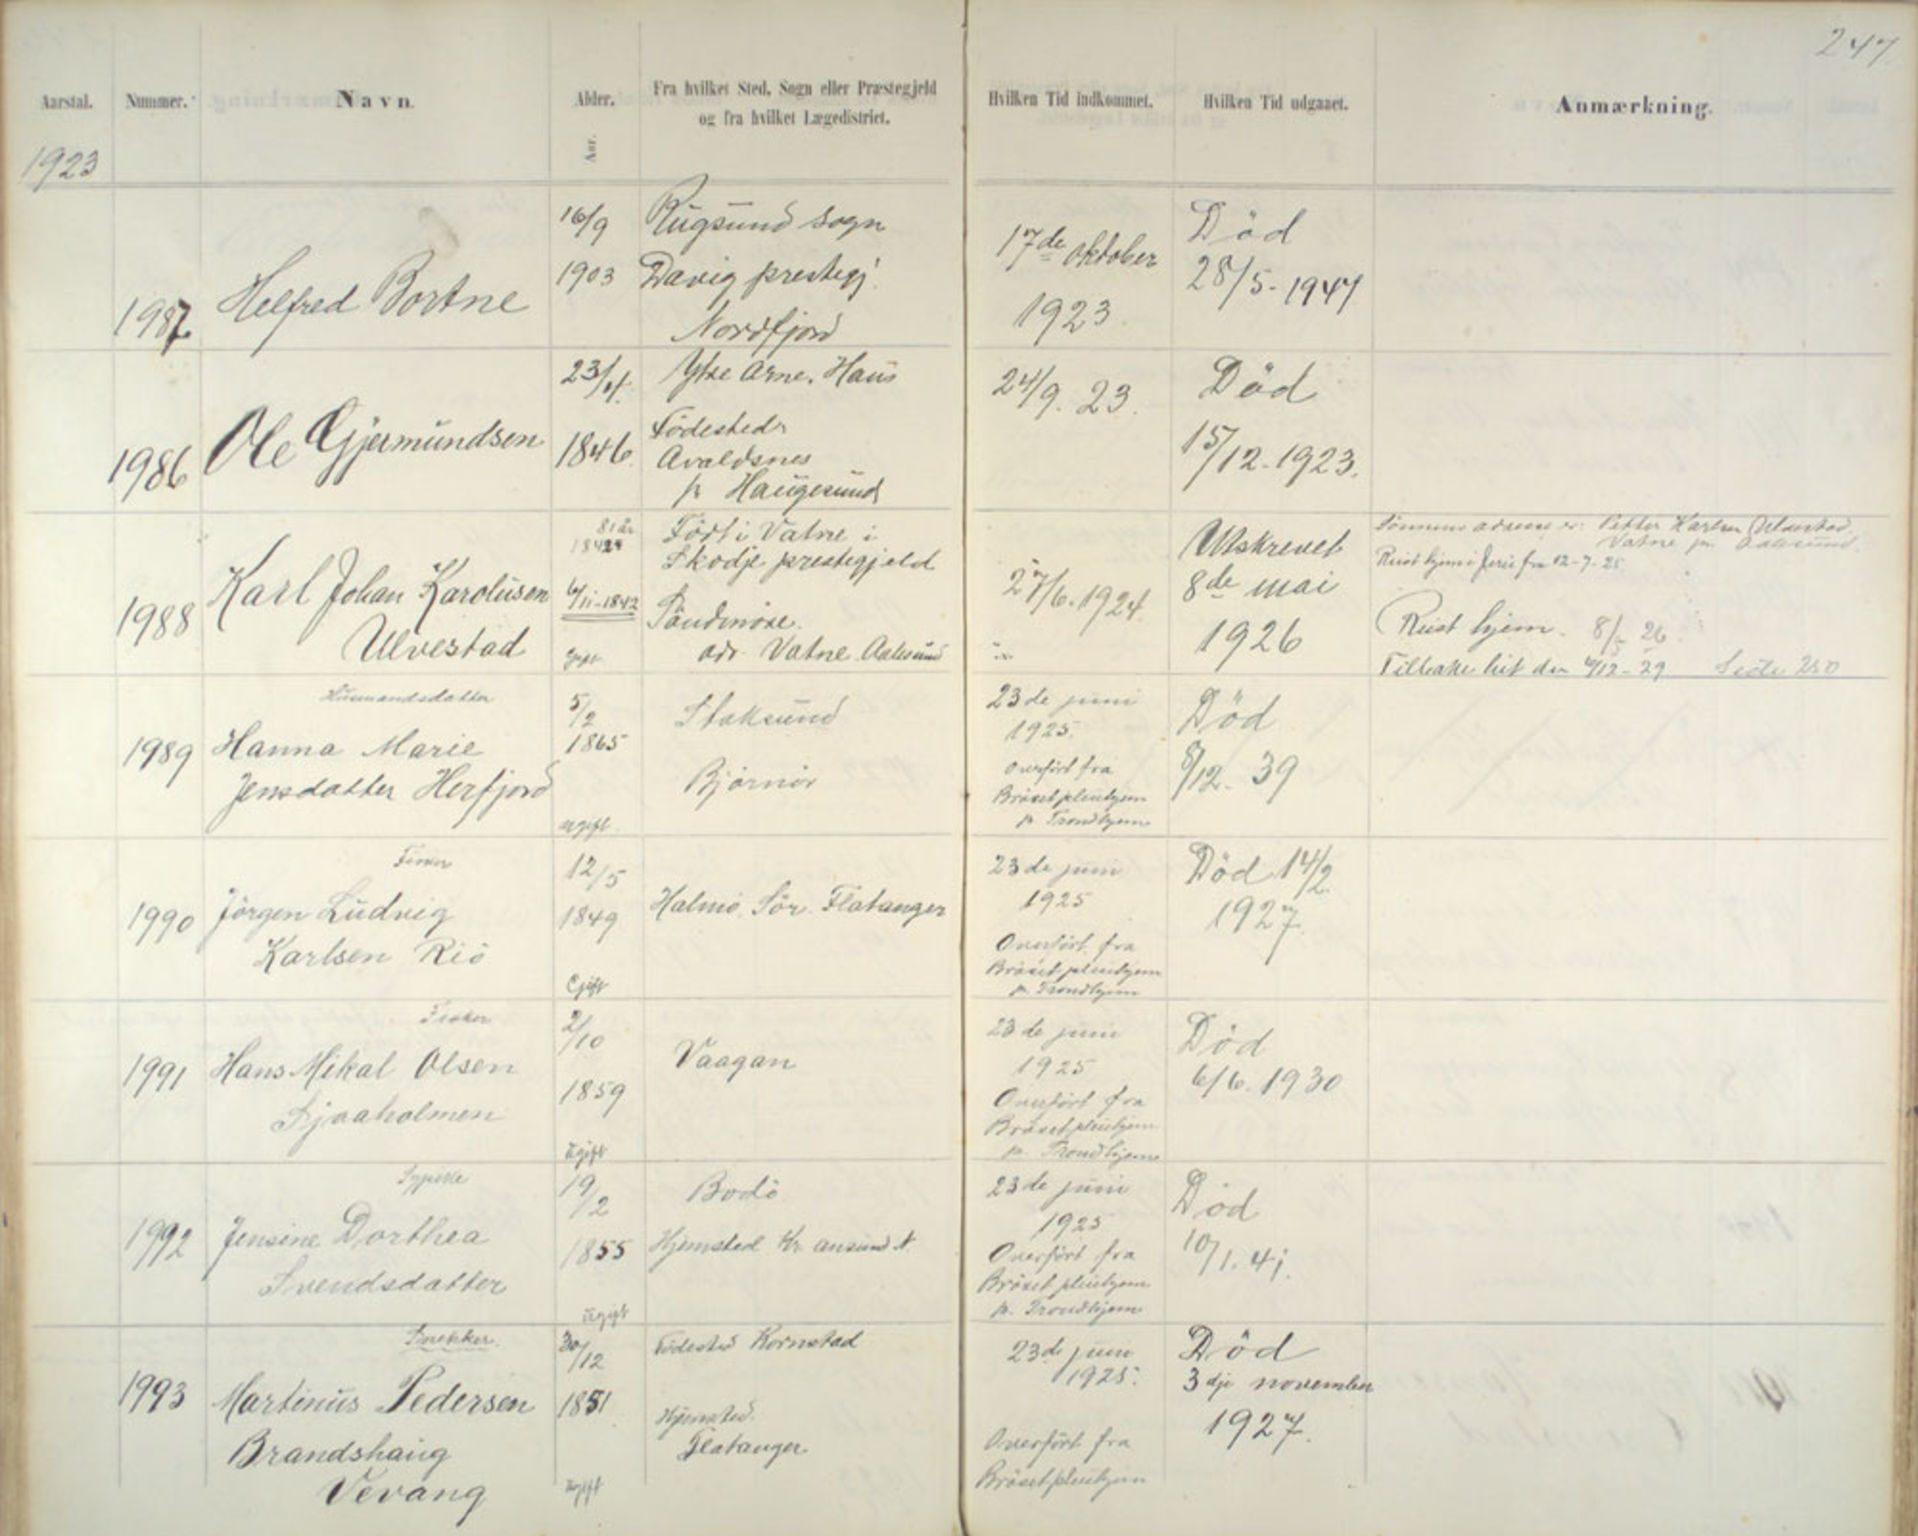 247.
Aarstal.
Nummer.
Navn.
Alder.
Aar.
Fra hvilket Sted, Sogn eller Præstegjeld
og fra hvilket Lægedistrict.
Hvilken Tid indkommet.
Hvilken Tid udgaaet.
Anmærkning.
1923
1987
Helfred Bortne
16/9
1903
Rugsund sogn
Davig prestegj.
Nordfjord
17de oktober
1923
Död
28/5-1947
1986
Ole Gjermundsen
23/4.
1846.
Ytre Arne. Haus
Födested
Avaldsnes
pr Haugesund
24/9. 23.
Död
15/12-1923.
1988
Karl Johan Karolusen
Ulvestad
81 år
6/11-1842
Gift
Födt i Vatne i
Skodje prestegjeld
Söndmöre.
adr. Vatne Aalesund
27/6.1924.
Utskrevet
8de mai
1926
Sönnens adresse er: Petter Karlsen Ulvestad
Vatne pr. Aalesund.
Reist hjem i ferie fra 12-7-25
Reist hjem. 8/5 26.
Tilbake hit den 4/12-29 Side 250
1989
Husmandsdatter
Hanna Marie
Jensdatter Herfjord
5/2
1865
ugift.
Stoksund
Björnör
23de juni
1925.
Overfört fra
Bröset pleiehjem
pr Trondhjem
Död
8/12. 39
1990
Fisker
Jörgen Ludvig
Karlsen Riö
12/5
1849
Gift
Halmö Sör. Flatanger
23de juni
1925
Overfört fra
Bröset pleiehjem
pr. Trondhjem
Död 14/2.
1927.
1991
Fisker
Hans Mikal Olsen
Sjaaholmen
2/10
1859
ugift
Vaagan
23de juni
1925
Overfört fra
Bröset pleiehjem
pr. Trondhjem
Död
6/6. 1930
1992
Sypike
Jensine Dorthea
Svendsdatter
19/2
1855
ugift
Bodö
Hjemsted Kr.ansund N.
23de juni
1925
Overfört fra
Bröset pleiehjem
pr. Trondhjem
Död
10/1. 41.
1993
Snekker.
Martinus Pedersen
Brandshaug
Vevang
30/12
1851
ugift
Födested Kornstad
Hjemsted.
Flatanger
23de juni
1925.
Overfört fra
Bröset pleiehjem
Död
3dje november
1927.